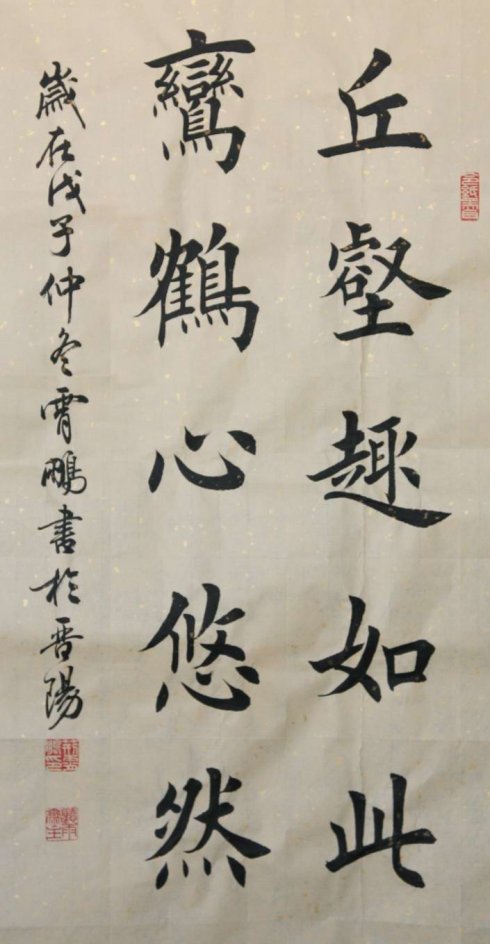 丘壑趣如此
鸞鶴心悠然
歲在戊子仲冬霄鵬書於晉陽